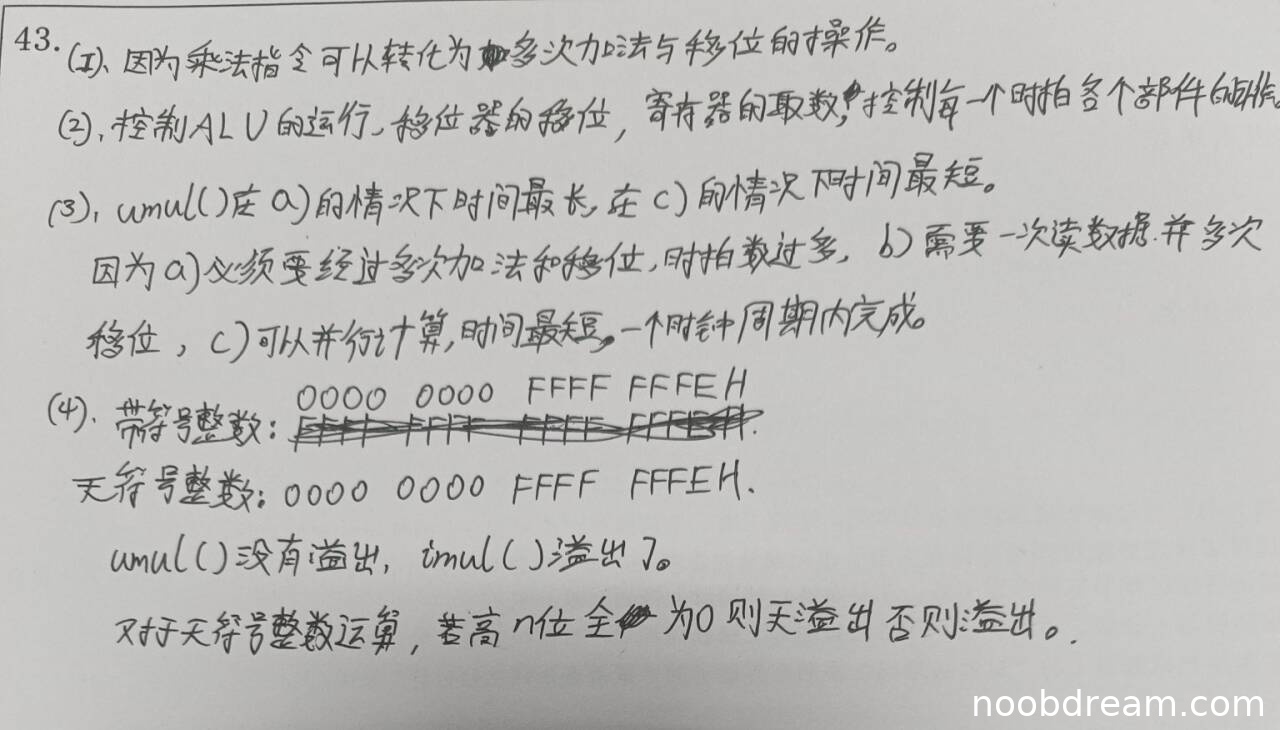 43. (1)、因为乘法指令可以转化为多次加法与移位的操作。
(2)、控制ALU的运行、移位器的移位，寄存器的取数，控制每一个时拍各个部件的动作。
(3)、umul()在a)的情况下时间最长，在c)的情况下时间最短。
因为a)必须要经过多次加法和移位，时拍数过多，b)需要一次读数据并多次
移位，c)可以并行计算，时间最短。一个时钟周期内完成。
0000 0000 FFFF FFFEH
(4)、带符号整数：
无符号整数：0000 0000 FFFF FFFEH.
umul()没有溢出，imul()溢出了。
对于无符号整数运算，若高n位全为0则无溢出否则溢出。.
noobdream.com